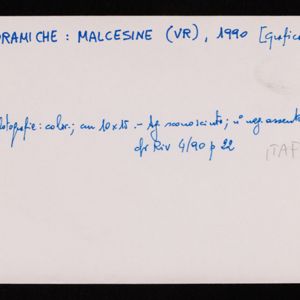 ORAMICHE : MALCESINE (VR), 1990 [grafic
fotografie: color.; cm 10x15 .- Ag sconosciuto; n° neg. assente
cfr Riv 4/90 p 22
ITAF